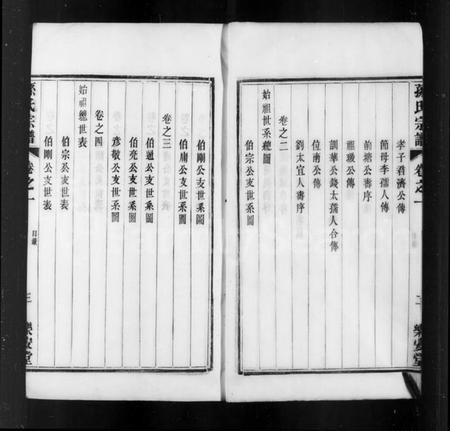 孫氏宗譜
卷之一
二
樂安堂
孝子君濟公傳
節母李孺人傳
前塘公壽序
雅璣公傳
訓華公錢太孺人合傳
位南公傳
劉太宜人壽序
卷之二
始祖世系總圖
伯宗公支世系圖
伯剛公支世系圖
伯庸公支世系圖
卷之三
伯通公支世系圖
伯亮公支世系圖
彥敬公支世系圖
卷之四
始祖總世表
伯宗公支世表
伯剛公支世表
孫氏宗譜
卷之一
目錄
三
樂安堂